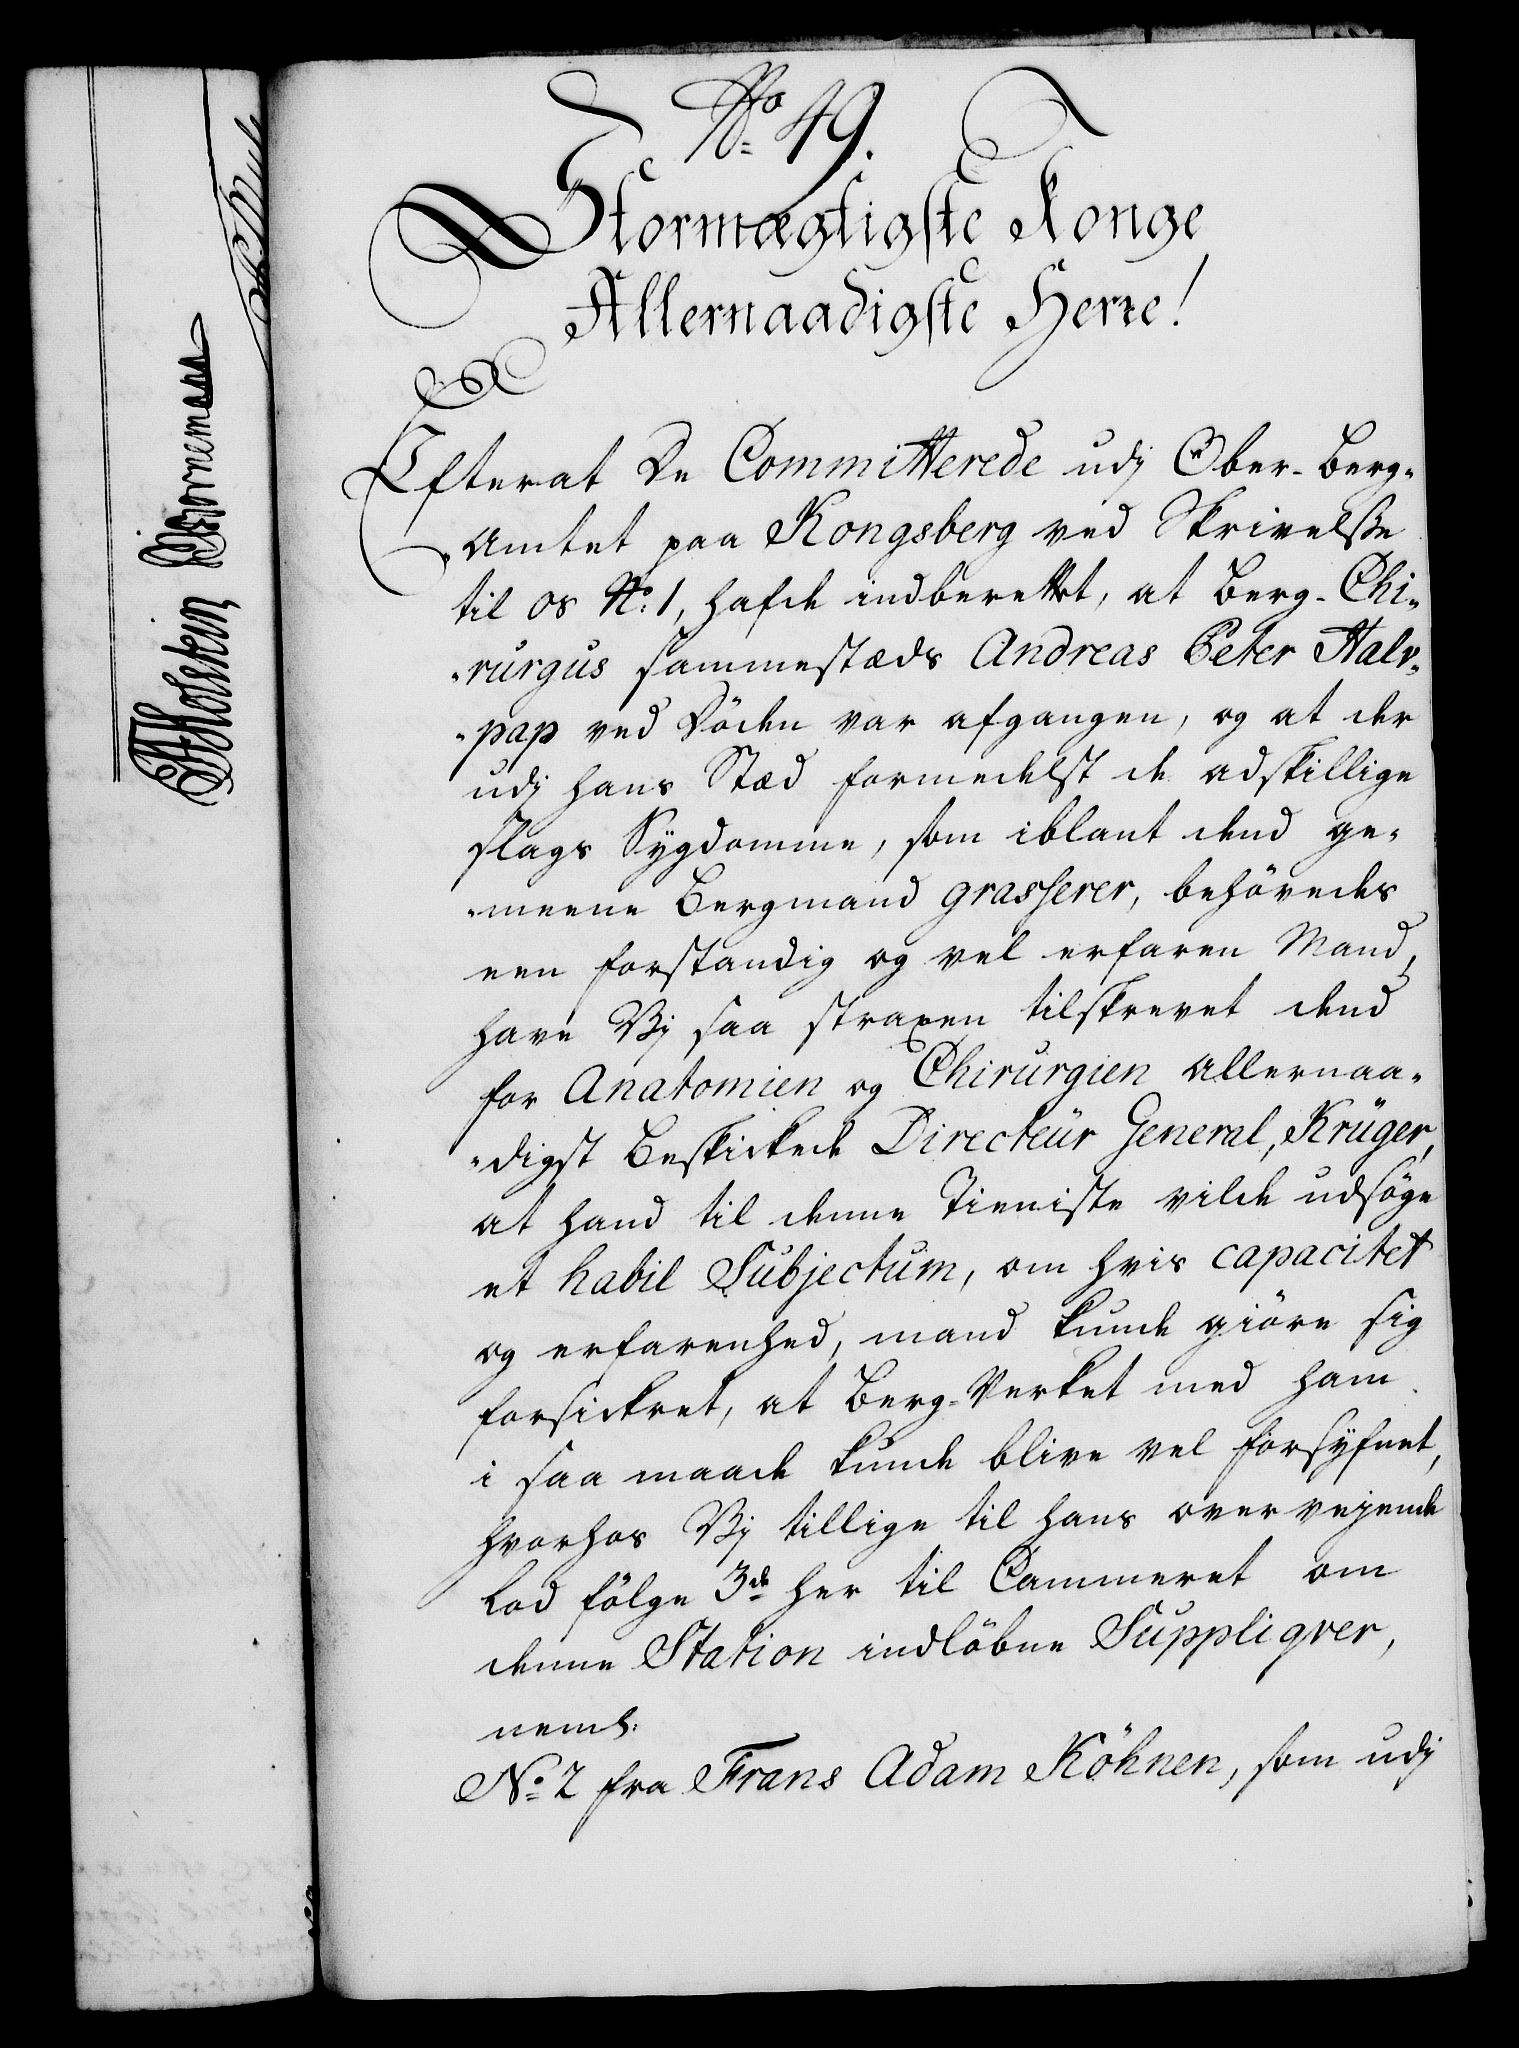 No. 49.
Stormægtigste Konge
Allernaadigste Herre!
Efterat De Committerede udj Ober-Berg-
-Amtet paa Kongsberg ved Skrivelsse
til os No. 1, hafde indberettet, at Berg-Chi-
-rurgus sammestæds Andreas Peter Halv-
-pap ved Döden var afgangen, og at der
udj hans Stæd formedelst de adskillige
slags Sygdomme, som iblant dend ge-
-meene Bergmand grasserer, behövedes
een forstandig og vel erfaren Mand,
have Vj saa straxen tilskrevet dend
for Anatomien og Chirurgien Allernaa-
-digst Beskickede Directeür General, Krüger,
at hand til denne Tieniste vilde udsöge
et habil Subjectum, om hvis capacitet
og erfarenhed, mand kunde giöre sig
forsickret, at Berg-Verket med ham
i saa maade kunde blive vel forsÿfnet,
hvorhos Vj tillige til hans overvejende
Lod fölge 3de her til Cammeret om
denne Station indlöbne Suppliqver,
neml:
No. 2 fra Frans Adam Köhnen, som udj
Holstein
Bornemann